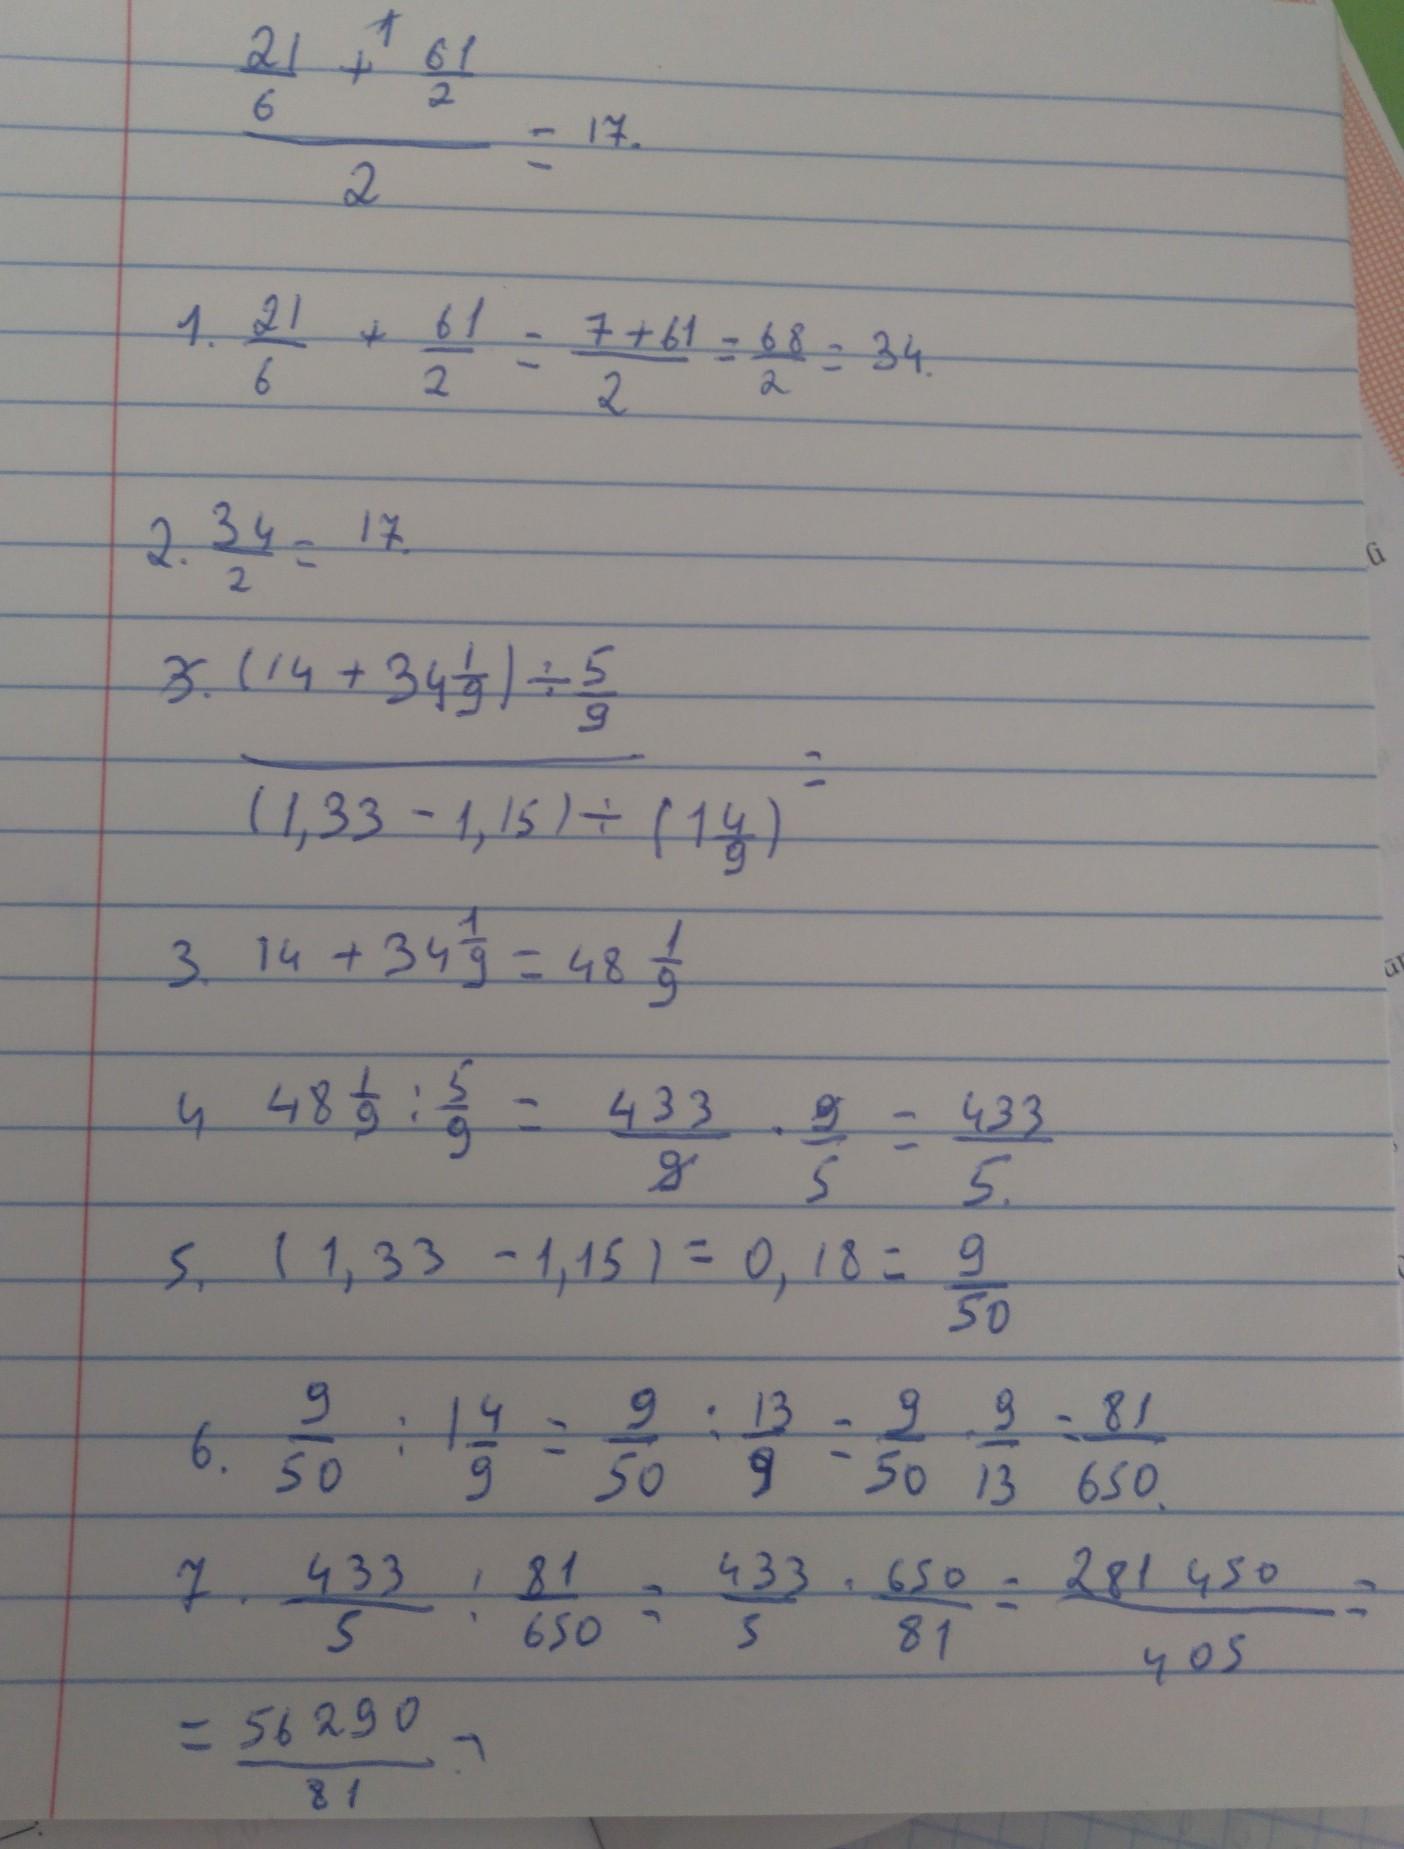 21/6 + 1 61/2
2 = 17.
1. 21/6 + 61/2 = 7+61/2 = 68/2 = 34.
2. 34/2 = 17.
3. (14 + 34 1/9) ÷ 5/9
(1,33 - 1,15) ÷ (1 4/9) =
3. 14 + 34 1/9 = 48 1/9
4 48 1/9 : 5/9 = 433/9 · 9/5 = 433/5.
5. (1,33 - 1,15) = 0,18 = 9/50
6. 9/50 : 1 4/9 = 9/50 : 13/9 = 9/50 · 9/13 = 81/650.
7. 433/5 : 81/650 = 433/5 · 650/81 = 281 450/405 =
= 56 290/81